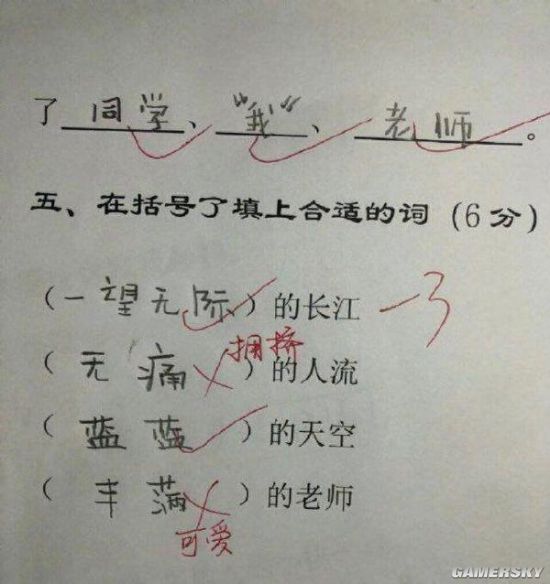 了同学、“我”、老师。
五、在括号了填上合适的词（6分）
（一望无际）的长江 -3
拥挤
（无痛）的人流
（蓝蓝）的天空
（丰满）的老师
可爱
GAMERSKY